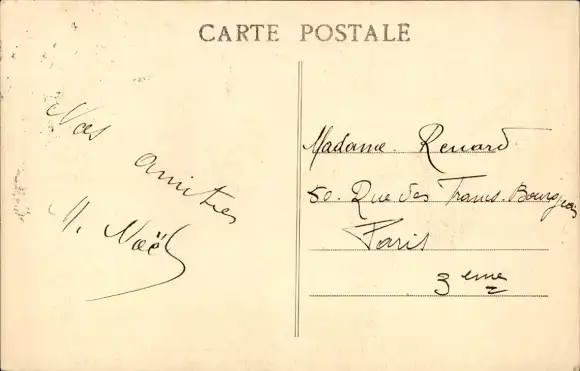 CARTE POSTALE
Nos
amitiés
M. Noël
Madame Renard
50. Rue des Francs-Bourgeois
Paris
3eme